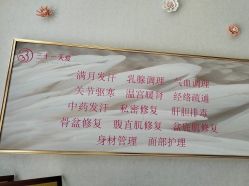 三十一天爱
满月发汗 乳腺调理 气血调理
关节驱寒 温宫暖肾 经络疏通
中药发汗 私密修复 肝胆排毒
骨盆修复 腹直肌修复 盆底肌修复
身材管理 面部护理